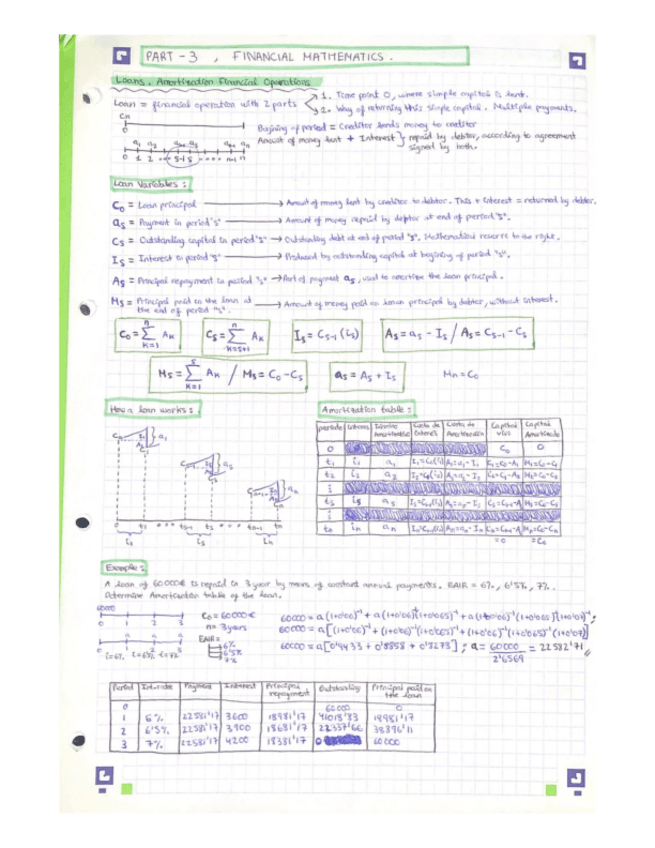 PART - 3 , FINANCIAL MATHEMATICS.
Loans. Amortization Financial Operations
Loan = financial operation with 2 parts
1. Time point 0, where simple capital is lent.
2. Way of returning this simple capital. Multiple payments.
Begining of period = Creditor lends money to creditor
Amount of money lent + Interest } repaid by debtor, according to agreement
signed by both.
Loan Variables:
C₀ = Loan principal → Amount of money lent by creditor to debtor. This + interest = returned by debtor.
as = Payment in period "s" → Amount of money repaid by debtor at end of period "s".
Cs = Outstanding capital in period "s" → Outstanding debt at end of period "s". Mathematical reserve to the right.
Is = Interest in period "s" → Produced by outstanding capital at begining of period "s".
As = Principal repayment in period "s" → Part of payment as, used to amortize the loan principal.
Ms = Principal paid on the loan at → Amount of money paid on loan principal by debtor, without interest.
the end of period "s".
C₀ = Σ Ak Cs = Σ Ak Is = Cs-1 (is) As = as - Is / As = Cs-1 - Cs
Ms = Σ Ak / Ms = C₀ - Cs as = As + Is Mn = C₀
How a loan works:
Amortization table:
periodo Término Amortizativo Cuota de Interés Cuota de Amortización Capital vivo Capital Amortizado
0 C₀ 0
t₁ i₁ a₁ I₁=C₀(i₁) A₁=a₁-I₁ C₁=C₀-A₁ M₁=C₀-C₁
t₂ i₂ a₂
ts is as
tn in an
=0 =C₀
Example:
A loan of 60000€ is repaid in 3 year by means of constant annual payments. EAIR = 6%, 6'5%, 7%.
Determine Amortization table of the loan.
60000
0 1 2 3
C₀ = 60000€
n = 3 years
EAIR =
6%
6'5%
7%
i=6% i=6'5% i=7%
60000 = a(1+0'06)⁻¹ + a(1+0'06)⁻¹(1+0'065)⁻¹ + a(1+0'06)⁻¹(1+0'065)⁻¹(1+0'07)⁻¹;
60000 = a[(1+0'06)⁻¹ + (1+0'06)⁻¹(1+0'065)⁻¹ + (1+0'06)⁻¹(1+0'065)⁻¹(1+0'07)⁻¹]
60000 = a[0'9433 + 0'8858 + 0'8273] ; a = 60000 / 2'6569 = 22582'71
Period Int.rate Payment Interest Principal repayment Outstanding Principal paid on the loan
0 60000 0
1 6% 22581'17 3600 18981'17 41018'83 18981'17
2 6'5% 22581'17 3900 18681'17 22337'66
3 7% 22581'17 4200 18381'17 0 60000